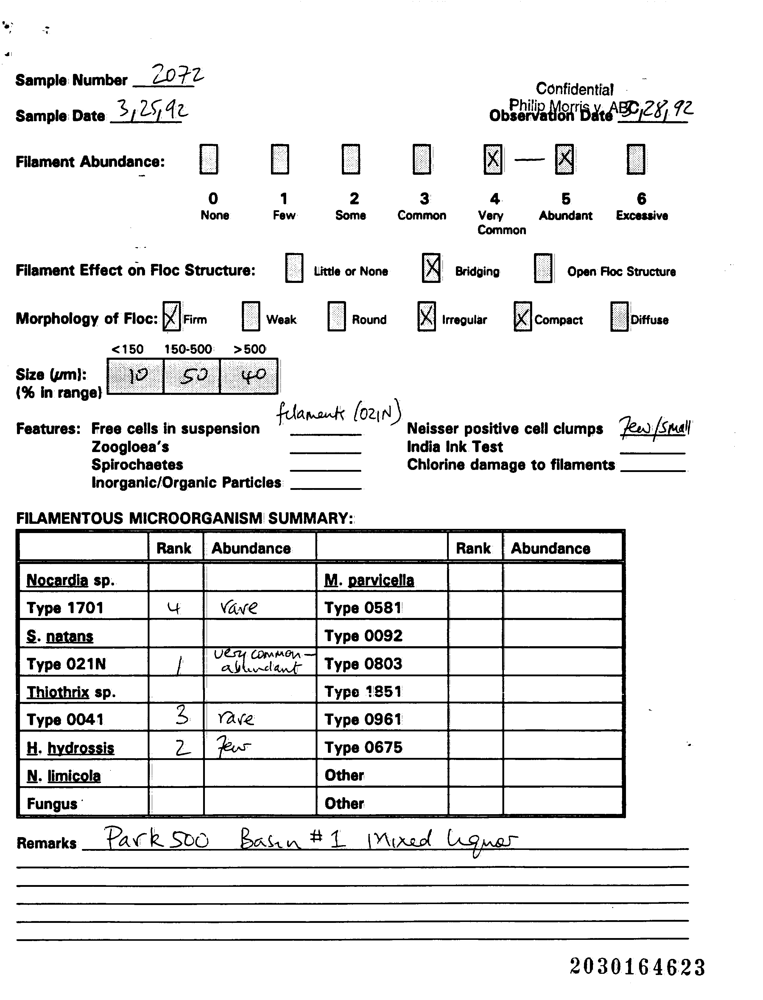 Sample Number 2072
Confidential
Philip Morris v. ABC
Sample Date 3,25,92 Observation Date 3,28,92
Filament Abundance: X — X
0 1 2 3 4 5 6
None Few Some Common Very Common Abundant Excessive
Filament Effect on Floc Structure: Little or None X Bridging Open Floc Structure
Morphology of Floc: X Firm Weak Round X Irregular X Compact Diffuse
<150 150-500 >500
Size (µm): 10 50 40
(% in range)
filaments (021N)
Features: Free cells in suspension Neisser positive cell clumps Few/small
Zoogloea's India Ink Test
Spirochaetes Chlorine damage to filaments
Inorganic/Organic Particles
FILAMENTOUS MICROORGANISM SUMMARY:
Rank Abundance Rank Abundance
Nocardia sp. M. parvicella
Type 1701 4 rare Type 0581
S. natans Type 0092
Type 021N 1 very common – abundant Type 0803
Thiothrix sp. Type 1851
Type 0041 3 rare Type 0961
H. hydrossis 2 Few Type 0675
N. limicola Other
Fungus Other
Remarks Park 500 Basin #1 Mixed Liquor
2030164623